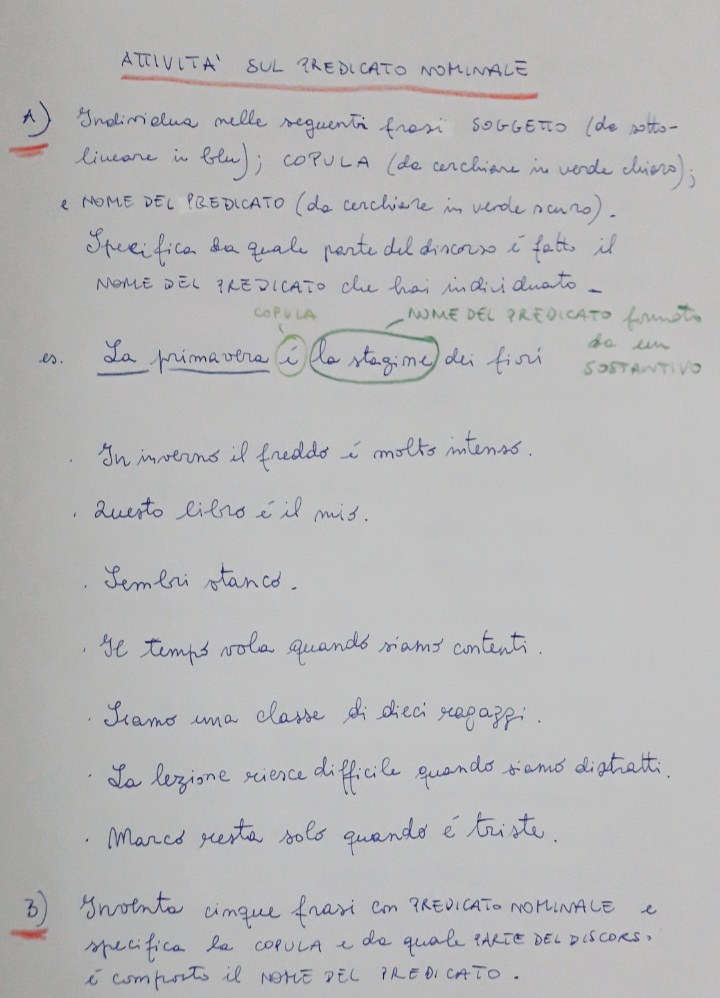 ATTIVITA' SUL PREDICATO NOMINALE
A) Individua nelle seguenti frasi SOGGETTO (da sotto-
lineare in blu); COPULA (da cerchiare in verde chiaro);
e NOME DEL PREDICATO (da cerchiare in verde scuro).
Specifica da quale parte del discorso è fatto il
NOME DEL PREDICATO che hai individuato -
COPULA NOME DEL PREDICATO formato
da un
es. La primavera è la stagione dei fiori
SOSTANTIVO
. In inverno il freddo è molto intenso.
. Questo libro è il mio.
. Sembri stanco.
. Il tempo vola quando siamo contenti.
. Siamo una classe di dieci ragazzi.
. La lezione riesce difficile quando siamo distratti.
. Marco resta solo quando è triste.
B) Inventa cinque frasi con PREDICATO NOMINALE e
specifica la COPULA e da quale PARTE DEL DISCORSO
è composto il NOME DEL PREDICATO.